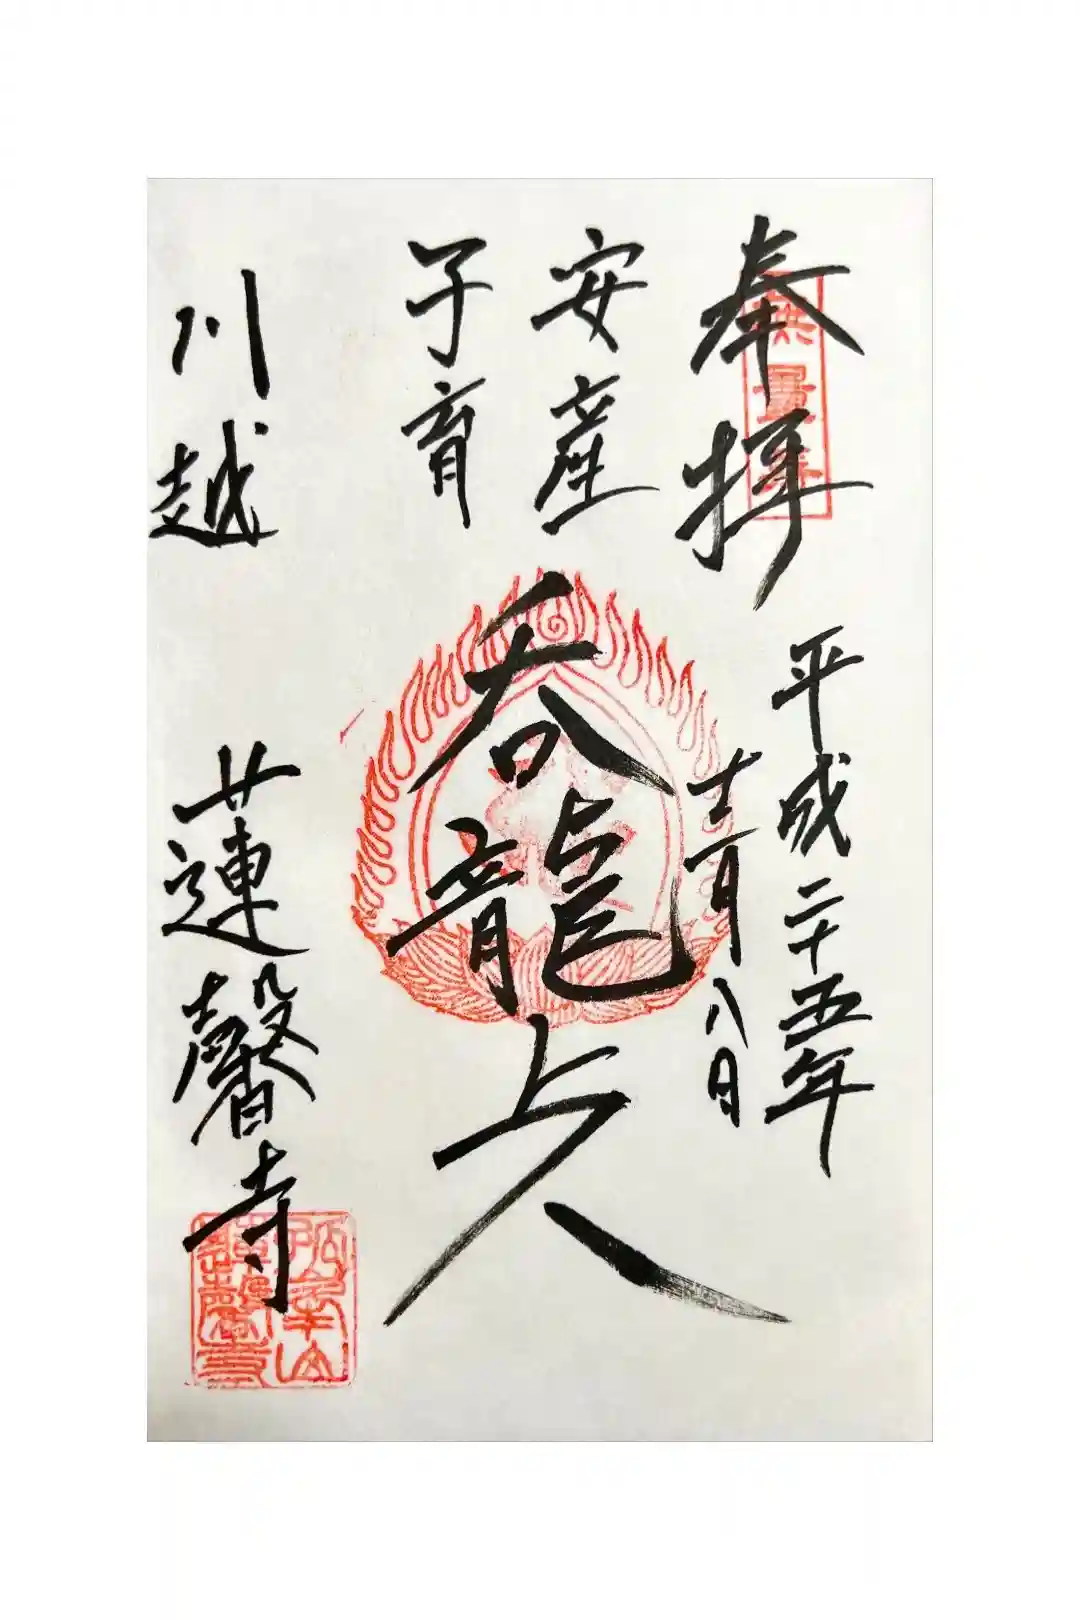 奉拝
無量寿
平成二十五年
十二月八日
安産
子育
呑龍上人
川越
蓮馨寺
孤峯山
蓮馨寺